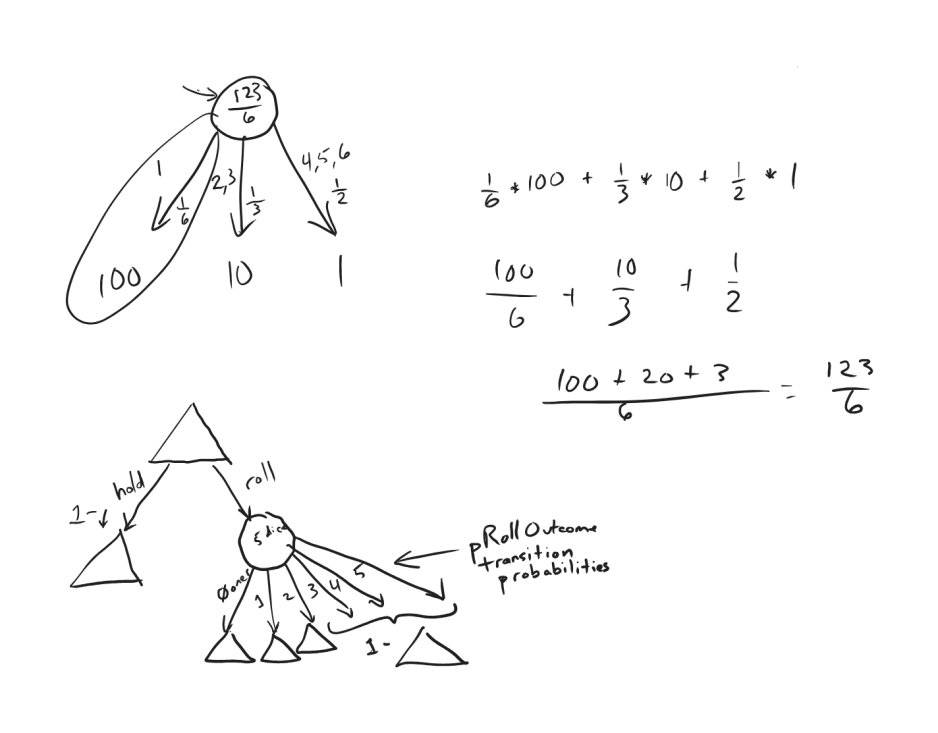 123
6
1
2,3
4,5,6
1
6
1
3
1
2
100
10
1
1/6 * 100 + 1/3 * 10 + 1/2 * 1
100/6 + 10/3 + 1/2
100 + 20 + 3 / 6 = 123/6
hold
roll
1-
5 dice
Ø ones
1
2
3
4
5
pRollOutcome
transition
probabilities
1-